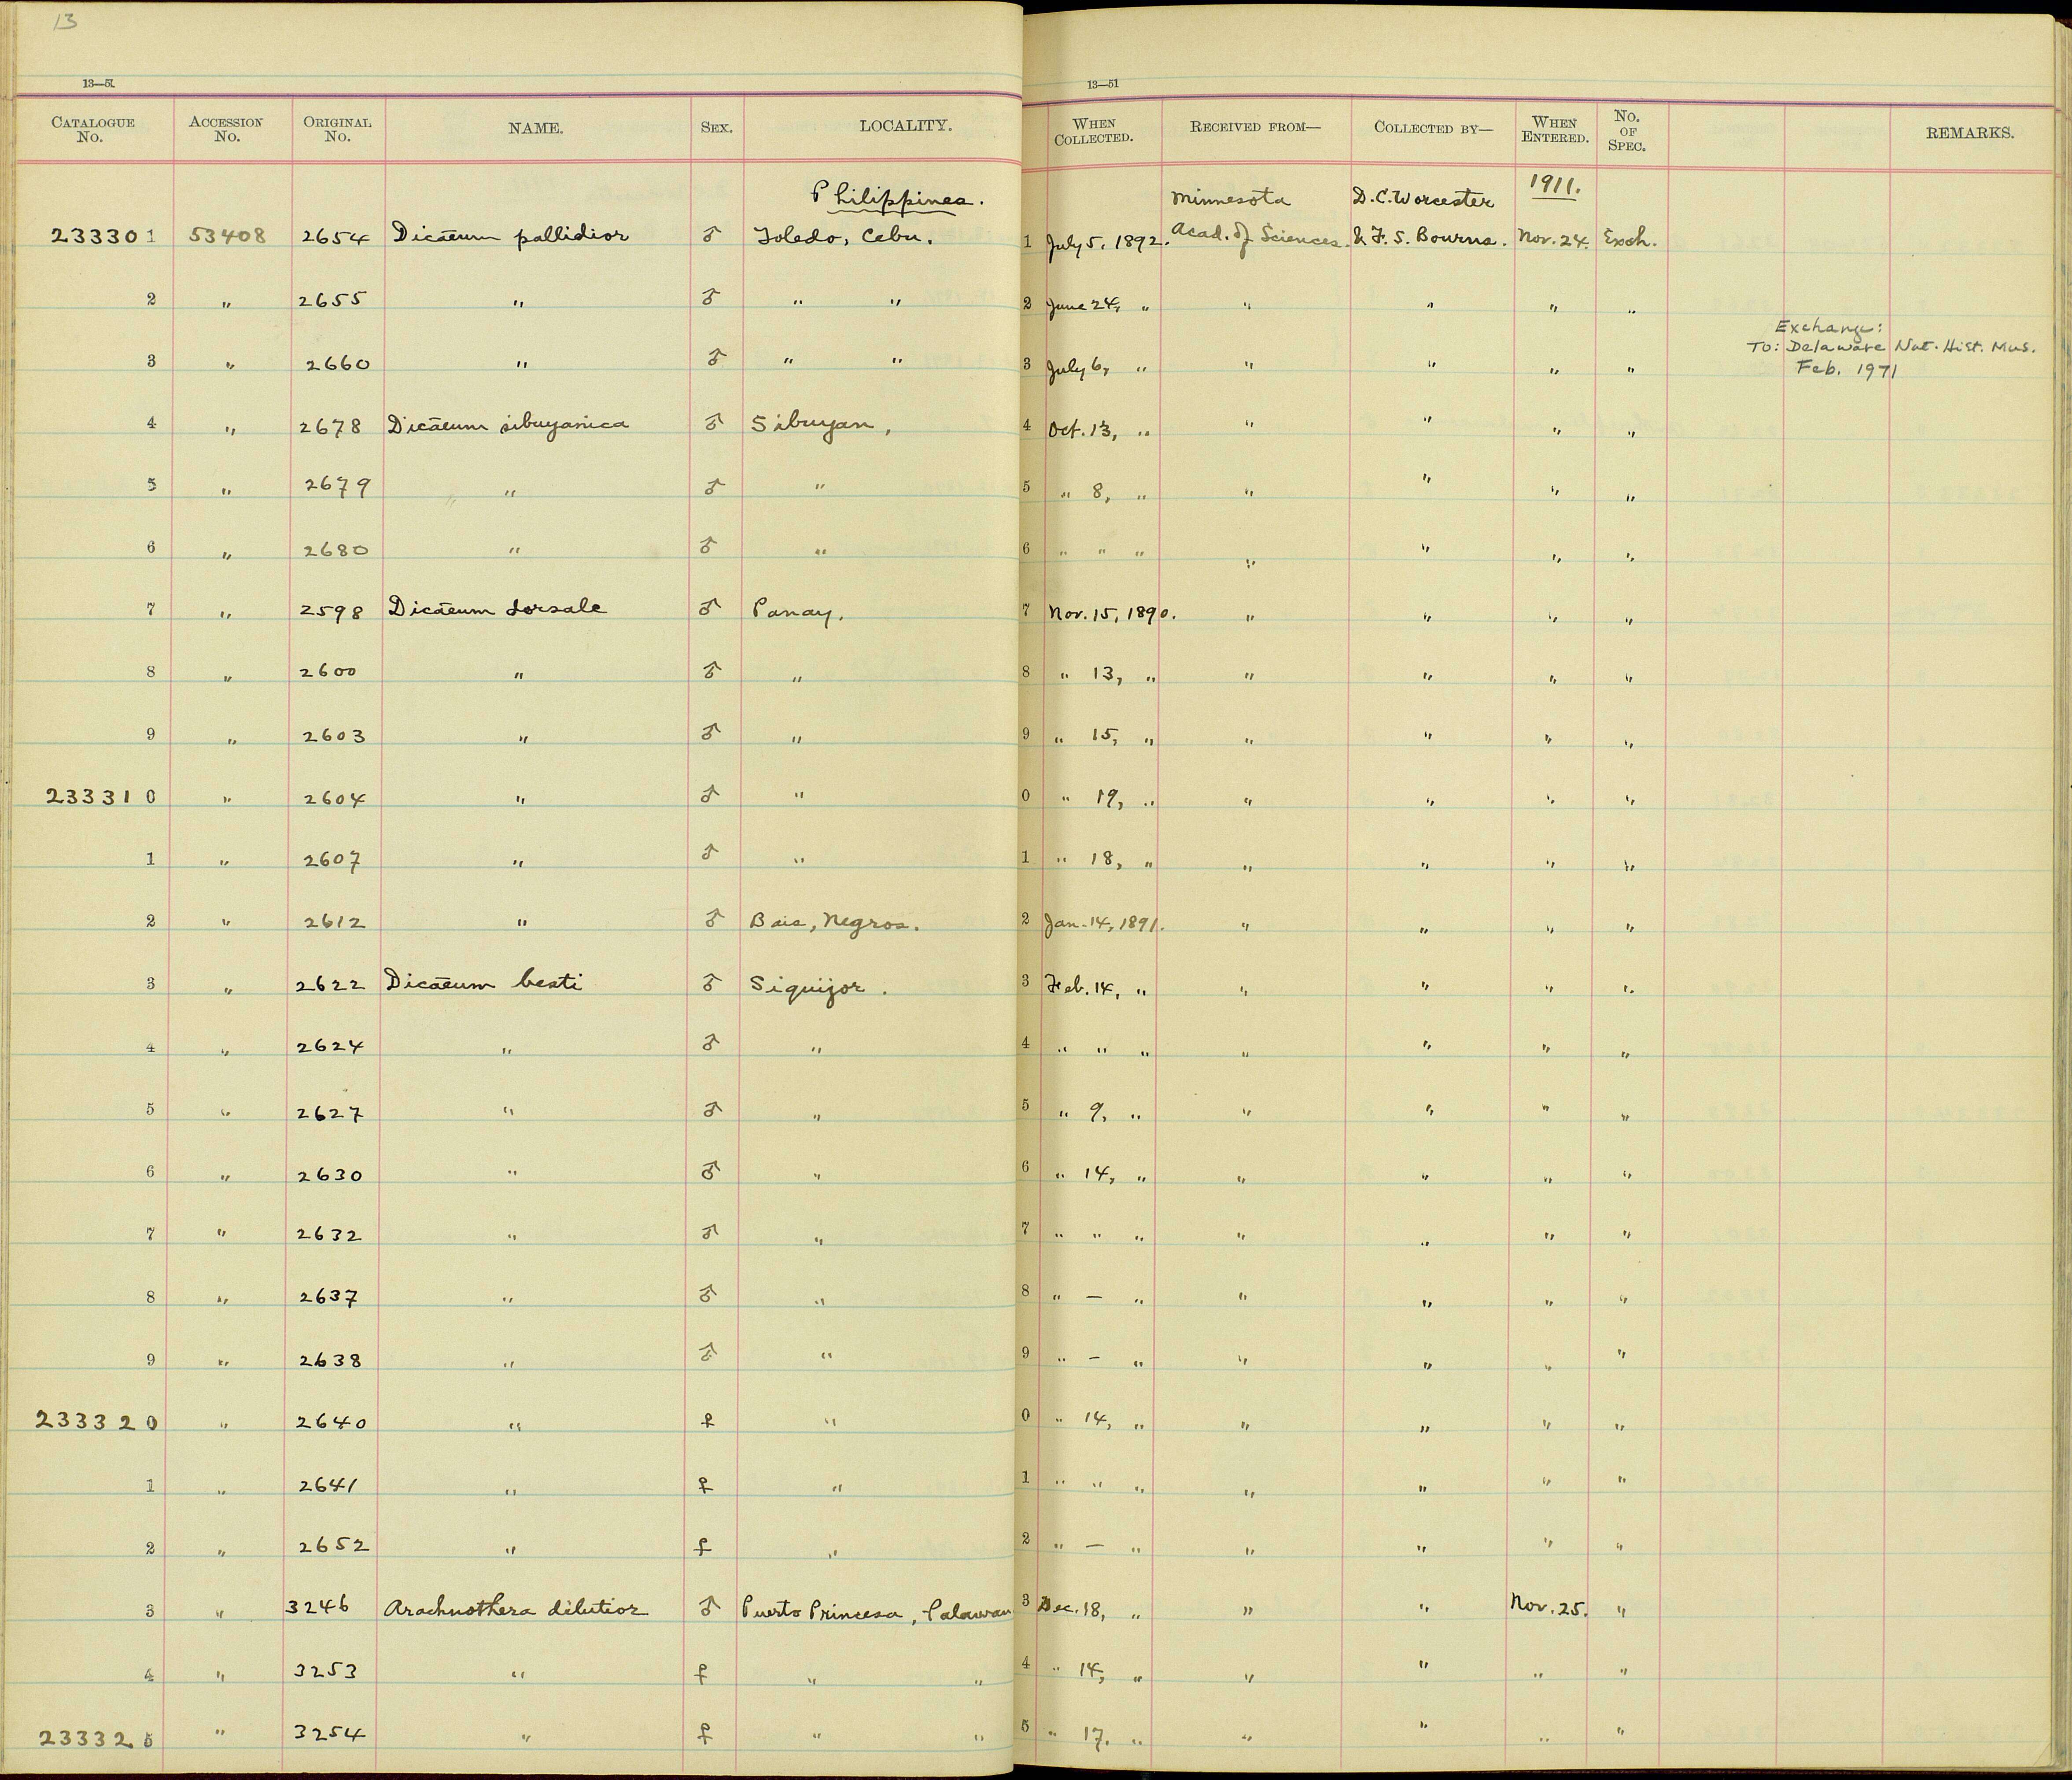 13
13—51
13—51
CATALOGUE No. ACCESSION No. ORIGINAL No. NAME. SEX. LOCALITY. WHEN COLLECTED. RECEIVED FROM— COLLECTED BY— WHEN ENTERED. No. OF SPEC. REMARKS.
Philippines. Minnesota D. C. Worcester 1911.
233301 53408 2654 Dicaeum pallidior ♂ Toledo, Cebu. 1 July 5, 1892. Acad. of Sciences. & F. S. Bourns. Nov. 24. Exch.
2 " 2655 " ♂ " " 2 June 24, " " " " "
Exchange:
To: Delaware Nat. Hist. Mus.
Feb. 1971
3 " 2660 " ♂ " " 3 July 6, " " " " "
4 " 2678 Dicaeum sibuyanica ♂ Sibuyan, 4 Oct. 13, " " " " "
5 " 2679 " ♂ " 5 " 8, " " " " "
6 " 2680 " ♂ " 6 " " " " " " "
7 " 2598 Dicaeum dorsale ♂ Panay. 7 Nov. 15, 1890. " " " "
8 " 2600 " ♂ " 8 " 13, " " " " "
9 " 2603 " ♂ " 9 " 15, " " " " "
233310 " 2604 " ♂ " 0 " 19, " " " " "
1 " 2607 " ♂ " 1 " 18, " " " " "
2 " 2612 " ♂ Bais, Negros. 2 Jan. 14, 1891. " " " "
3 " 2622 Dicaeum besti ♂ Siquijor. 3 Feb. 14, " " " " "
4 " 2624 " ♂ " 4 " " " " " " "
5 " 2627 " ♂ " 5 " 9, " " " " "
6 " 2630 " ♂ " 6 " 14, " " " " "
7 " 2632 " ♂ " 7 " " " " " " "
8 " 2637 " ♂ " 8 " — " " " " "
9 " 2638 " ♂ " 9 " — " " " " "
233320 " 2640 " ♀ " 0 " 14, " " " " "
1 " 2641 " ♀ " 1 " " " " " " "
2 " 2652 " ♀ " 2 " — " " " " "
3 " 3246 Arachnothera dilutior ♂ Puerto Princesa, Palawan 3 Dec. 18, " " " Nov. 25. "
4 " 3253 " ♀ " " 4 " 14, " " " " "
233325 " 3254 " ♀ " " 5 " 17. " " " " "